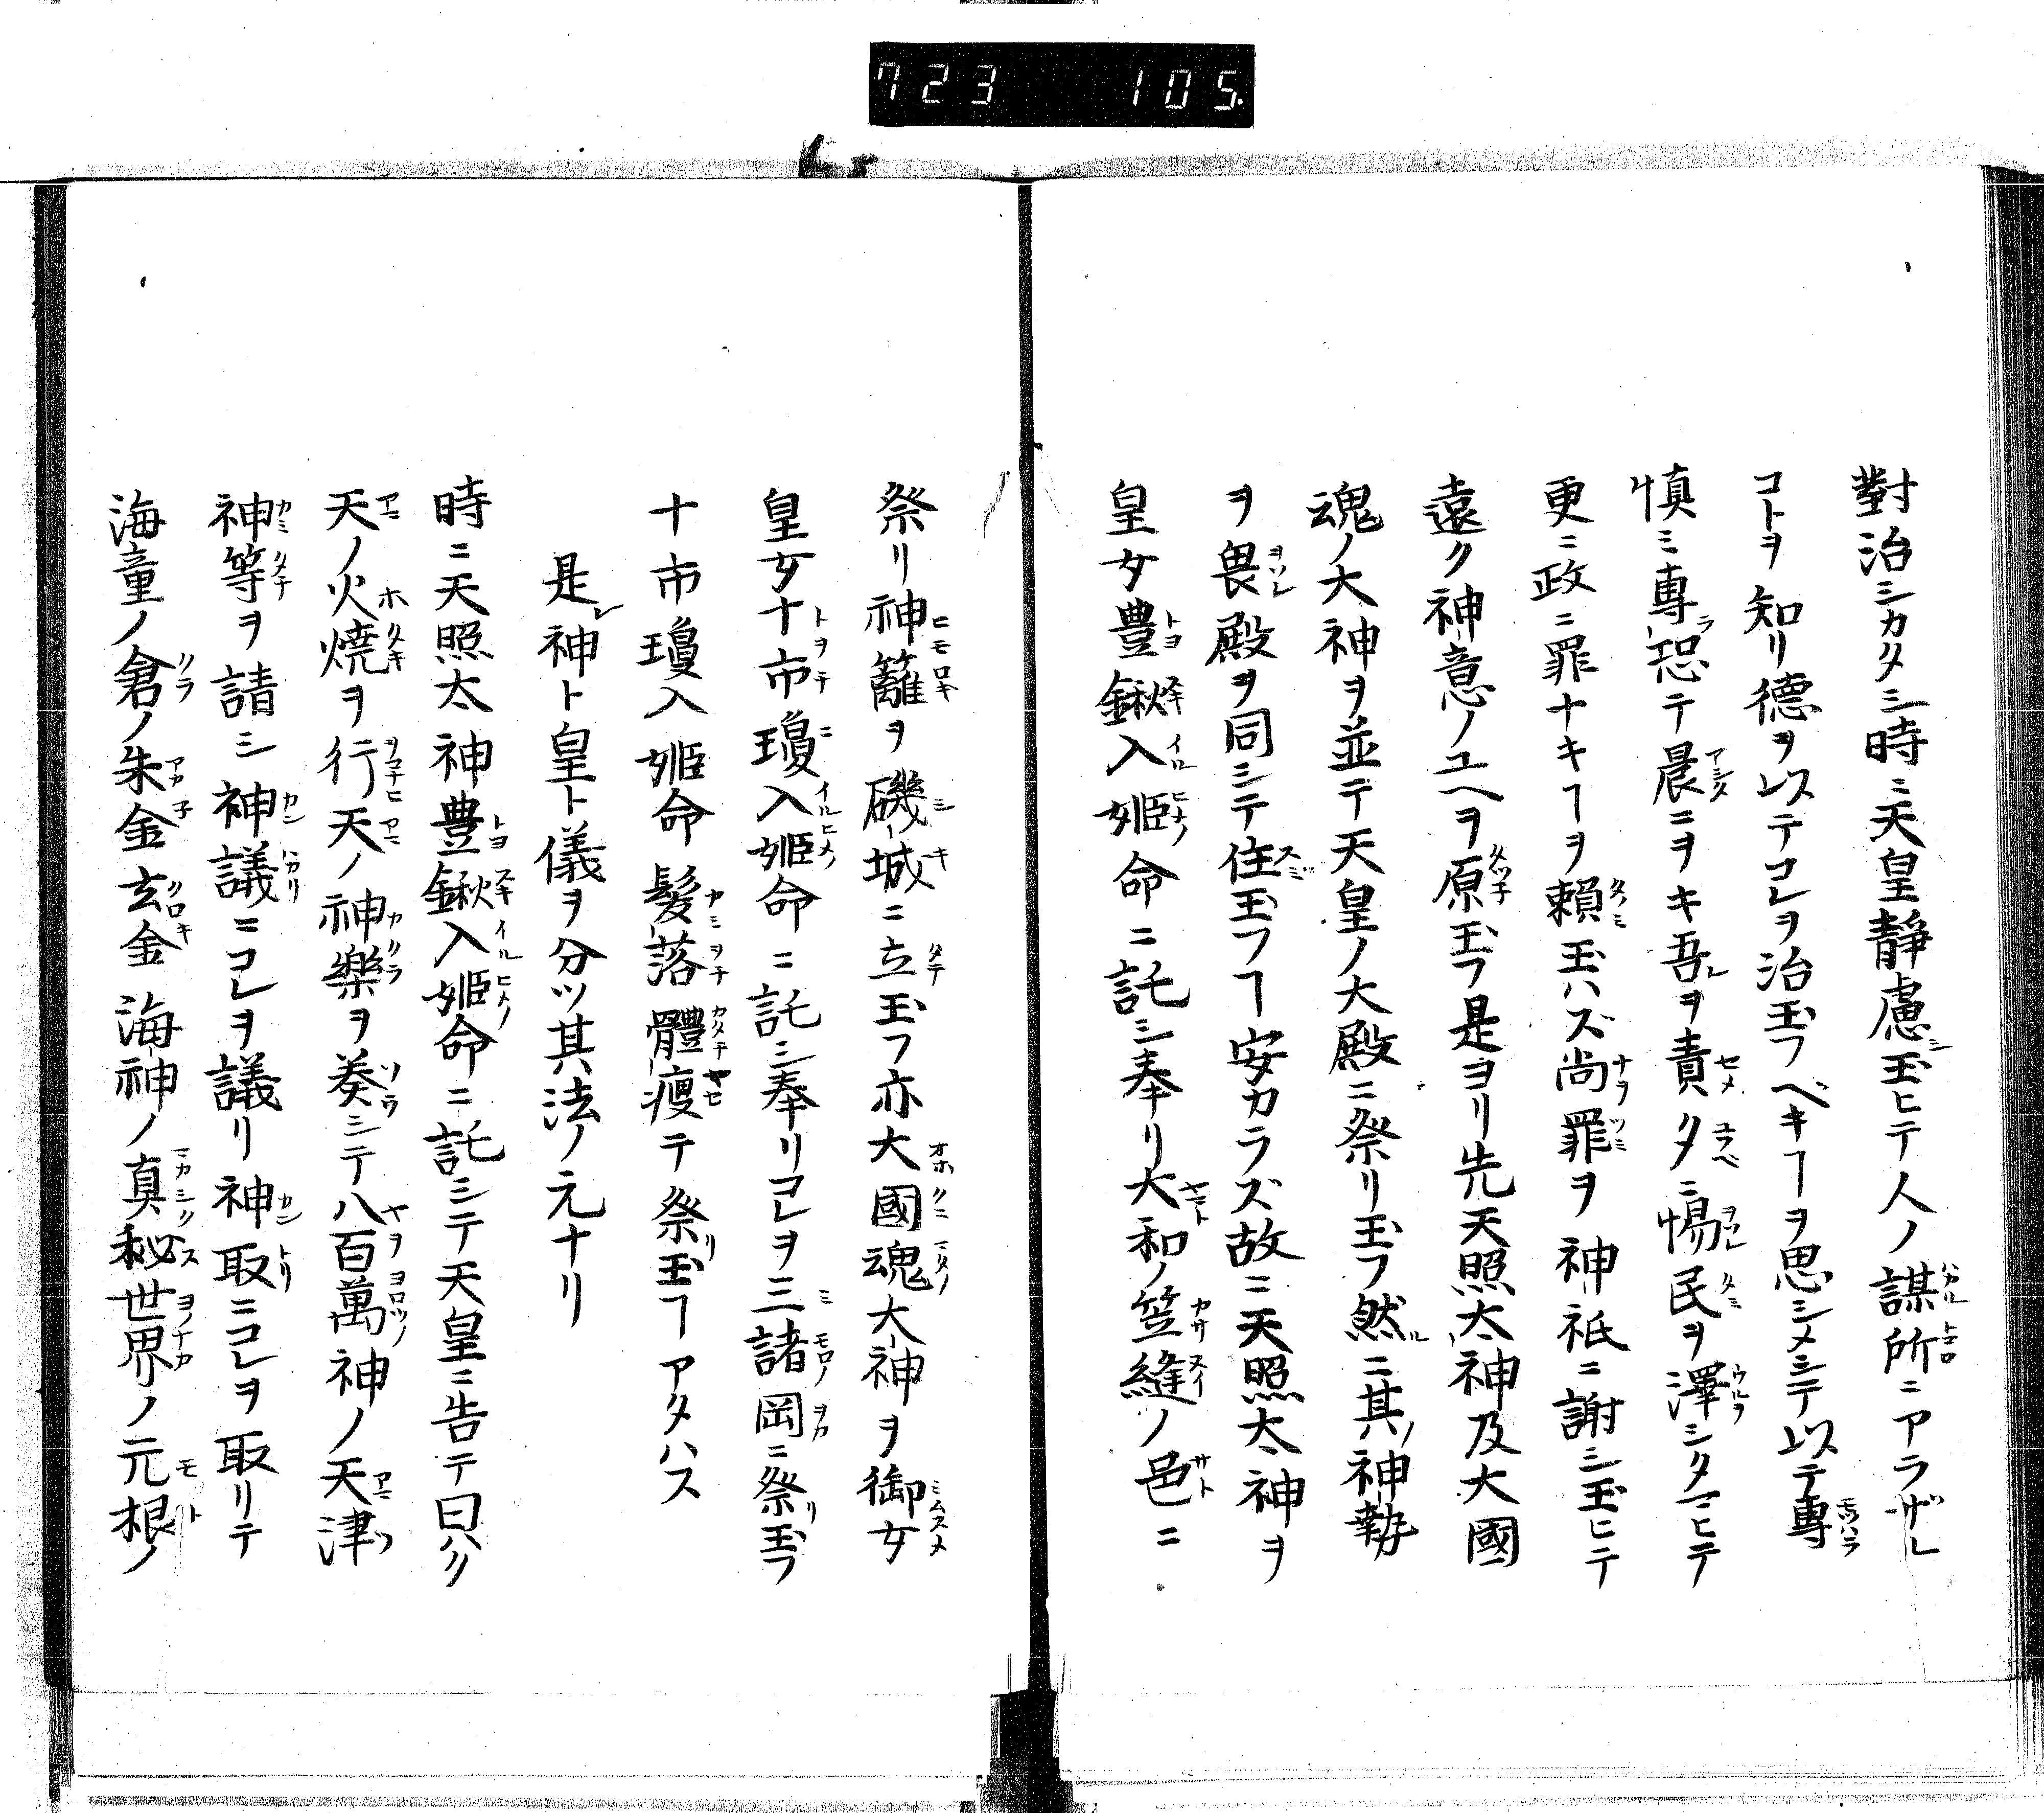 723 105.
對治シカタシ時ニ天皇靜慮シ玉ヒテ人ノ謀所ニアラザレ
コトヲ知リ德ヲ以テコレヲ治玉フベキヿヲ思シメシテ以テ專
慎ミ專ラ恐テ晨ニヲキ吾レヲ責タニ惕民ヲ澤シタマヒテ
更ニ政ニ罪ナキヿヲ賴玉ハズ尚罪ヲ神祇ニ謝シ玉ヒテ
遠ク神意ノユヘヲ原玉フ是ヨリ先天照太神及大國
魂ノ大神ヲ並テ天皇ノ大殿ニ祭リ玉フ然ルニ其ノ神勢
ヲ畏殿ヲ同シテ住玉フヿ安カラズ故ニ天照太神ヲ
皇女豊鍬入姬命ニ託シ奉リ大和ノ笠縫ノ邑ニ
祭リ神籬ヲ磯城ニ立玉フ亦大國魂大神ヲ御女
皇女十市瓊入姬命ニ託シ奉リコレヲ三諸岡ニ祭リ玉フ
十市瓊入姬命髮落體瘦テ祭リ玉フヿアタハス
是レ神ト皇ト儀ヲ分ツ其法ノ元ナリ
時ニ天照太神豊鍬入姬命ニ託シテ天皇ニ告テ曰ハク
天ノ火燒ヲ行天ノ神樂ヲ奏シテ八百萬神ノ天津
神等ヲ請シ神議ニコレヲ議リ神取ニコレヲ取リテ
海童ノ倉ノ朱金玄金海神ノ真秘世界ノ元根ノ